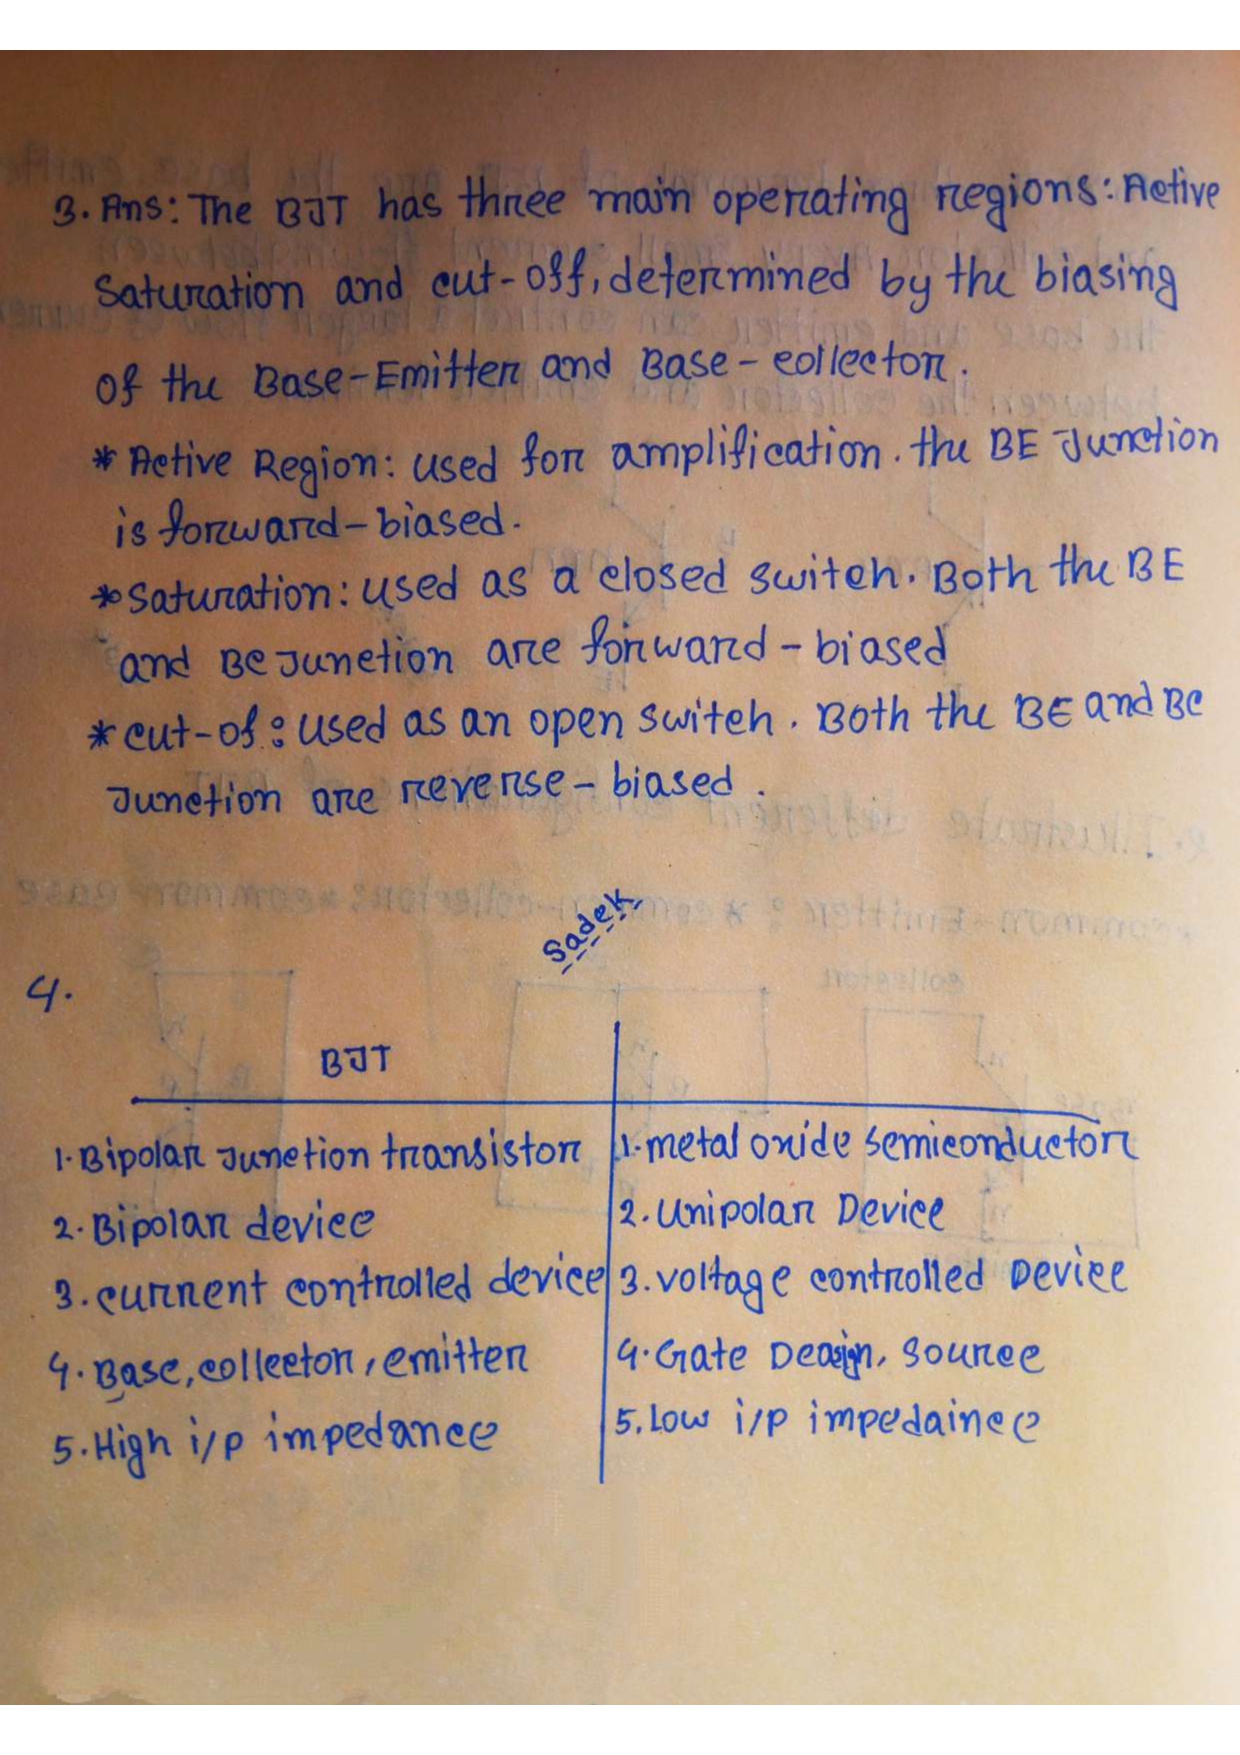 3. Ans: The BJT has three main operating regions: Active
Saturation and cut-off, determined by the biasing
of the Base-Emitter and Base-collector.
* Active Region: used for amplification. the BE Junction
is forward-biased.
* Saturation: used as a closed switch. Both the BE
and BC Junction are forward-biased
* cut-of: used as an open switch. Both the BE and BC
Junction are reverse-biased.
Sadek
4.
BJT
1. Bipolar Junction transistor 1. metal oxide semiconductor
2. Bipolar device 2. Unipolar Device
3. current controlled device 3. voltage controlled Device
4. Base, collector, emitter 4. Gate, Source
5. High i/p impedance 5. Low i/p impedaince